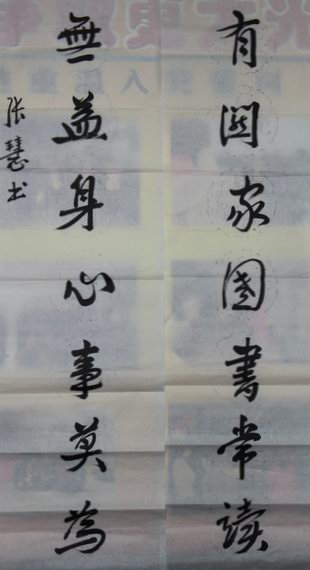 有關家國書常读
無益身心事莫為
张慧书